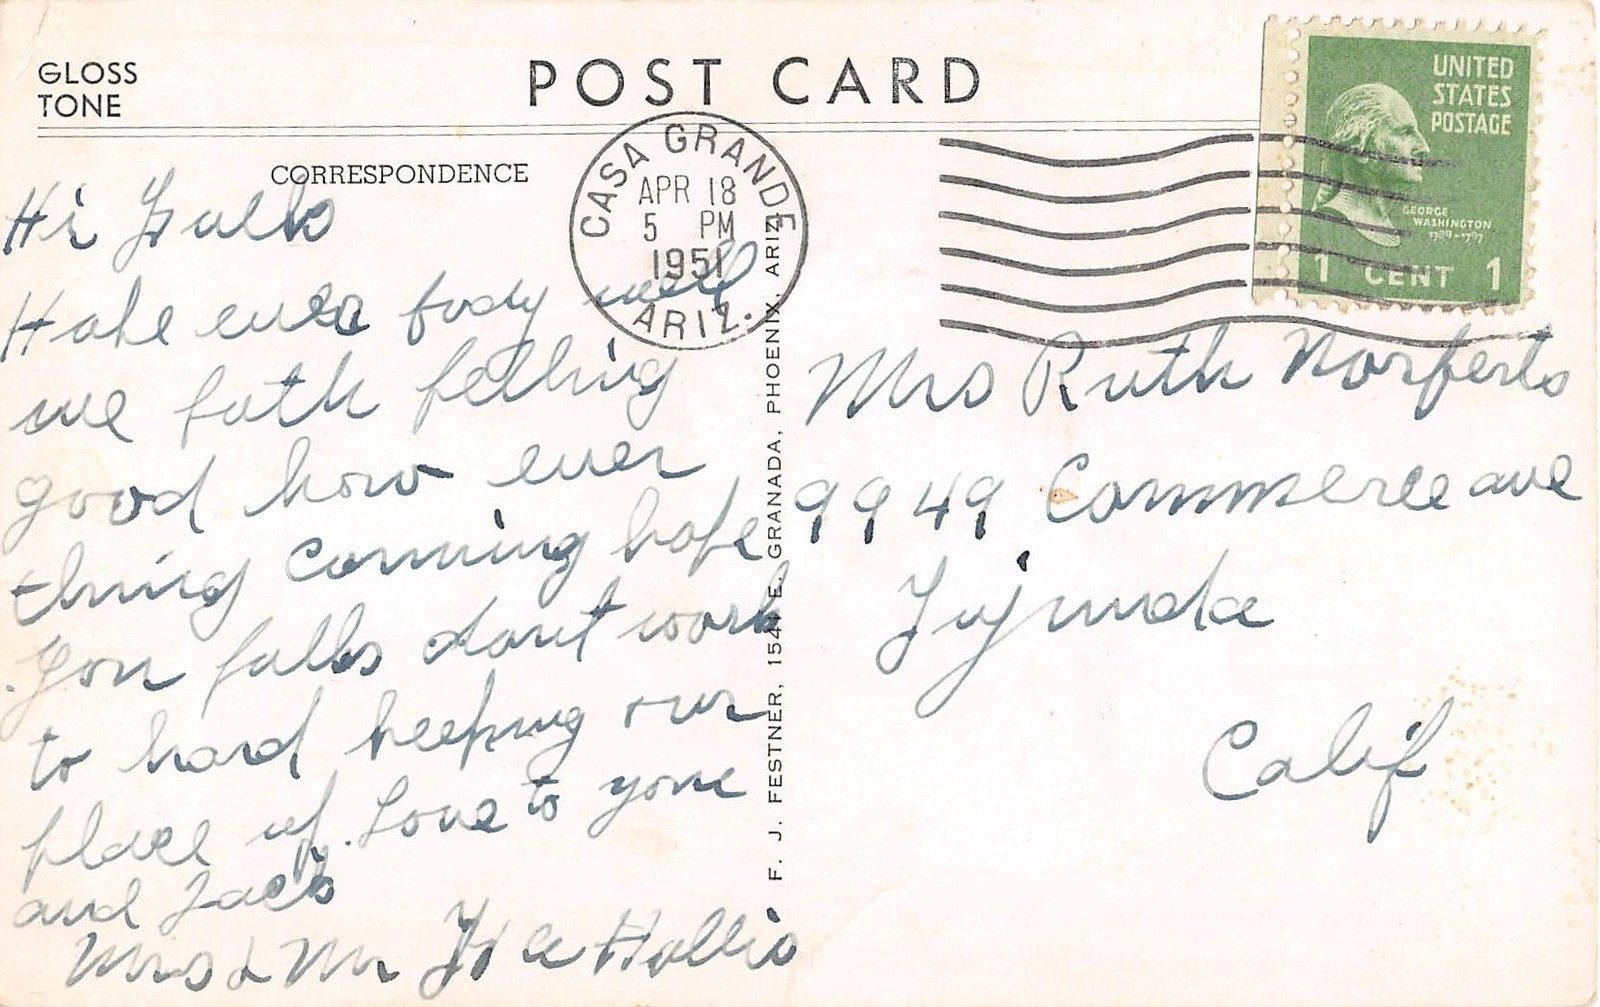 GLOSS
TONE
POST CARD
CORRESPONDENCE
CASA GRANDE
APR 18
5 PM
1951
ARIZ.
UNITED
STATES
POSTAGE
GEORGE
WASHINGTON
1789-1797
1 CENT 1
Hi
Hope body well
we both felling
good how ever
thing comming hope
you folks dont work
to hard keeping our
place up. Love to you
and Jack
Mrs & Mr Hollis
F. J. FESTNER, 1541 E. GRANADA, PHOENIX, ARIZ.
Mrs Ruth
9949 Commerce ave
Tujunda
Calif